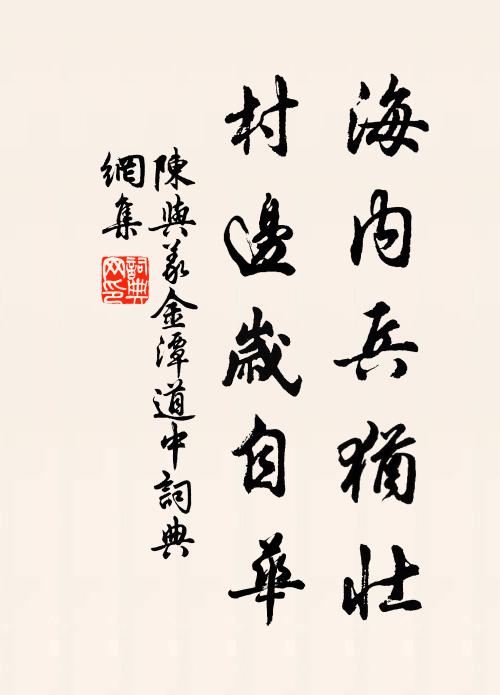 海內兵猶壯
村邊歲自華
陳與義金潭道中詞典
網集
詞典網印